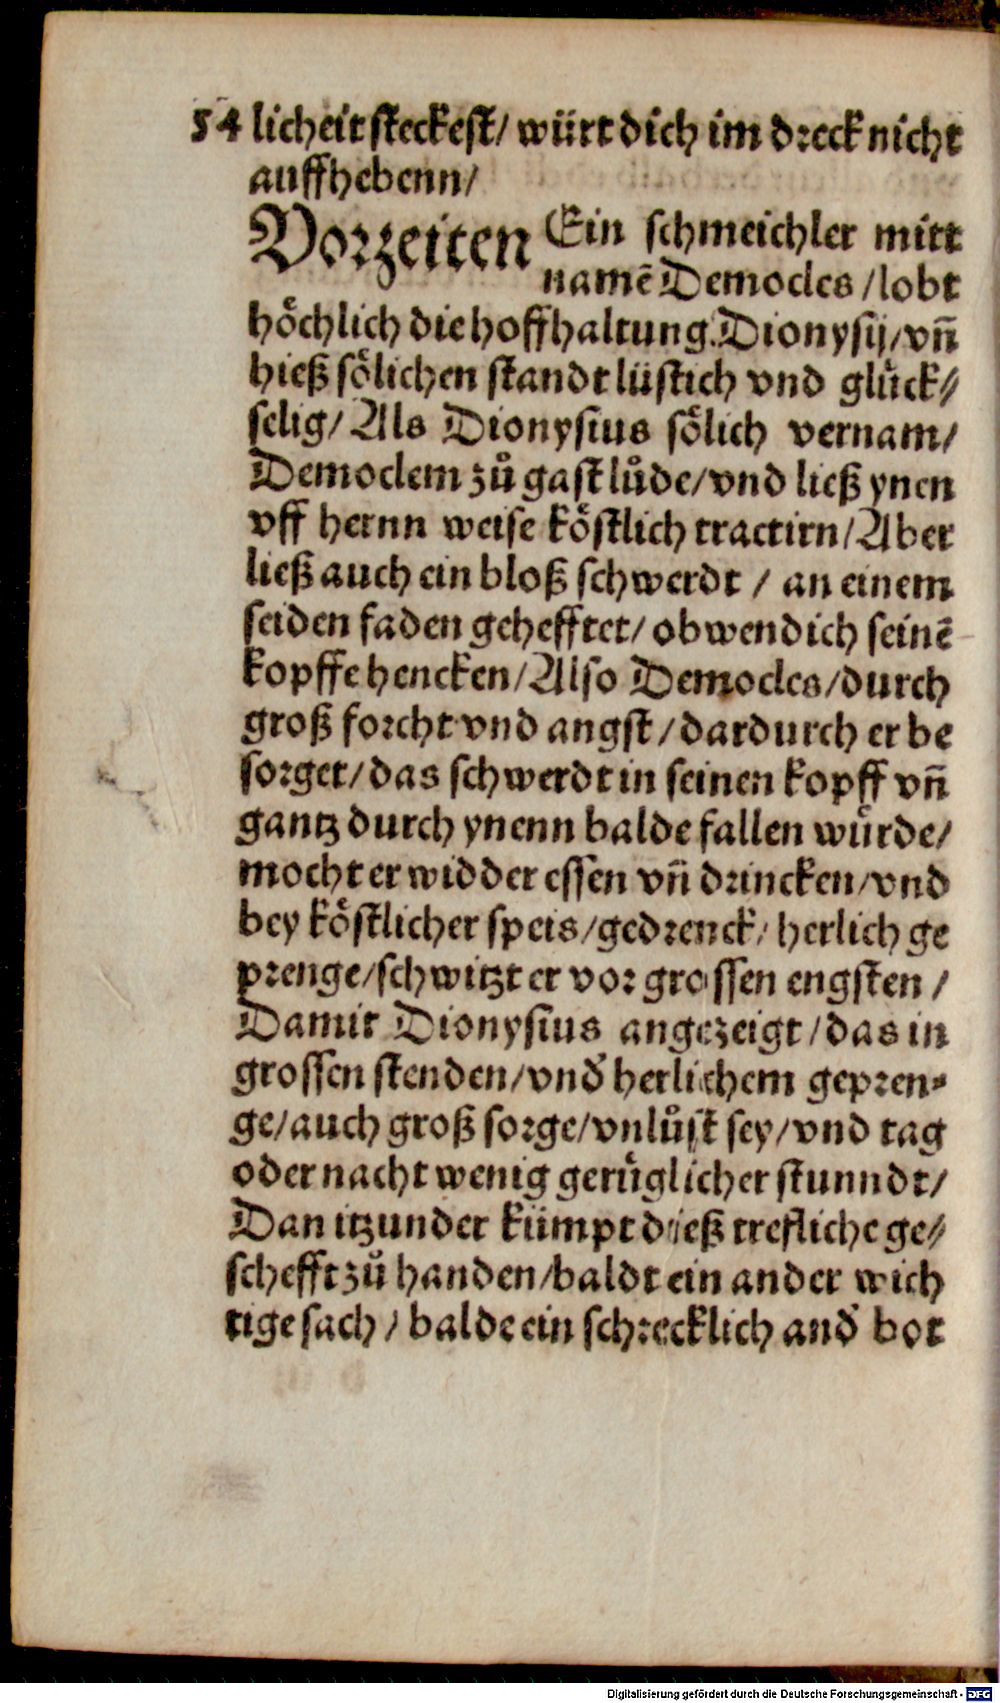 54 licheit steckest/ würt dich im dreck nicht
auffhebenn/
Vorzeiten Ein schmeichler mitt
namē Democles /lobt
hoͤchlich die hoffhaltung Dionysij/vñ
hieß soͤlichen standt lüstich vnd gluͤck⸗
selig/ Als Dionysius soͤlich vernam/
Democlem zuͦ gast luͦde/vnd ließ ynen
vff hernn weise koͤstlich tractirn/Aber
ließ auch ein bloß schwerdt / an einem
seiden faden gehefftet/ obwendich seinē
kopffe hencken/Also Democles/durch
groß forcht vnd angst /dardurch er be
sorget/das schwerdt in seinen kopff vñ
gantz durch ynenn balde fallen wuͤrde/
mocht er widder essen vñ drincken/vnd
bey koͤstlicher speis/gedrenck/ herlich ge
prenge/schwitzt er vor grossen engsten /
Damit Dionysius angezeigt /das in
grossen stenden/vnd̕ herlichem gepren⸗
ge/auch groß sorge/vnluͦst sey/vnd tag
oder nacht wenig geruͤglicher stunndt/
Dan itzunder kümpt dieß trefliche ge⸗
schefft zuͦ handen/baldt ein ander wich
tige sach / balde ein schrecklich and̕ bot
Digitalisierung gefördert durch die Deutsche Forschungsgemeinschaft - DFG